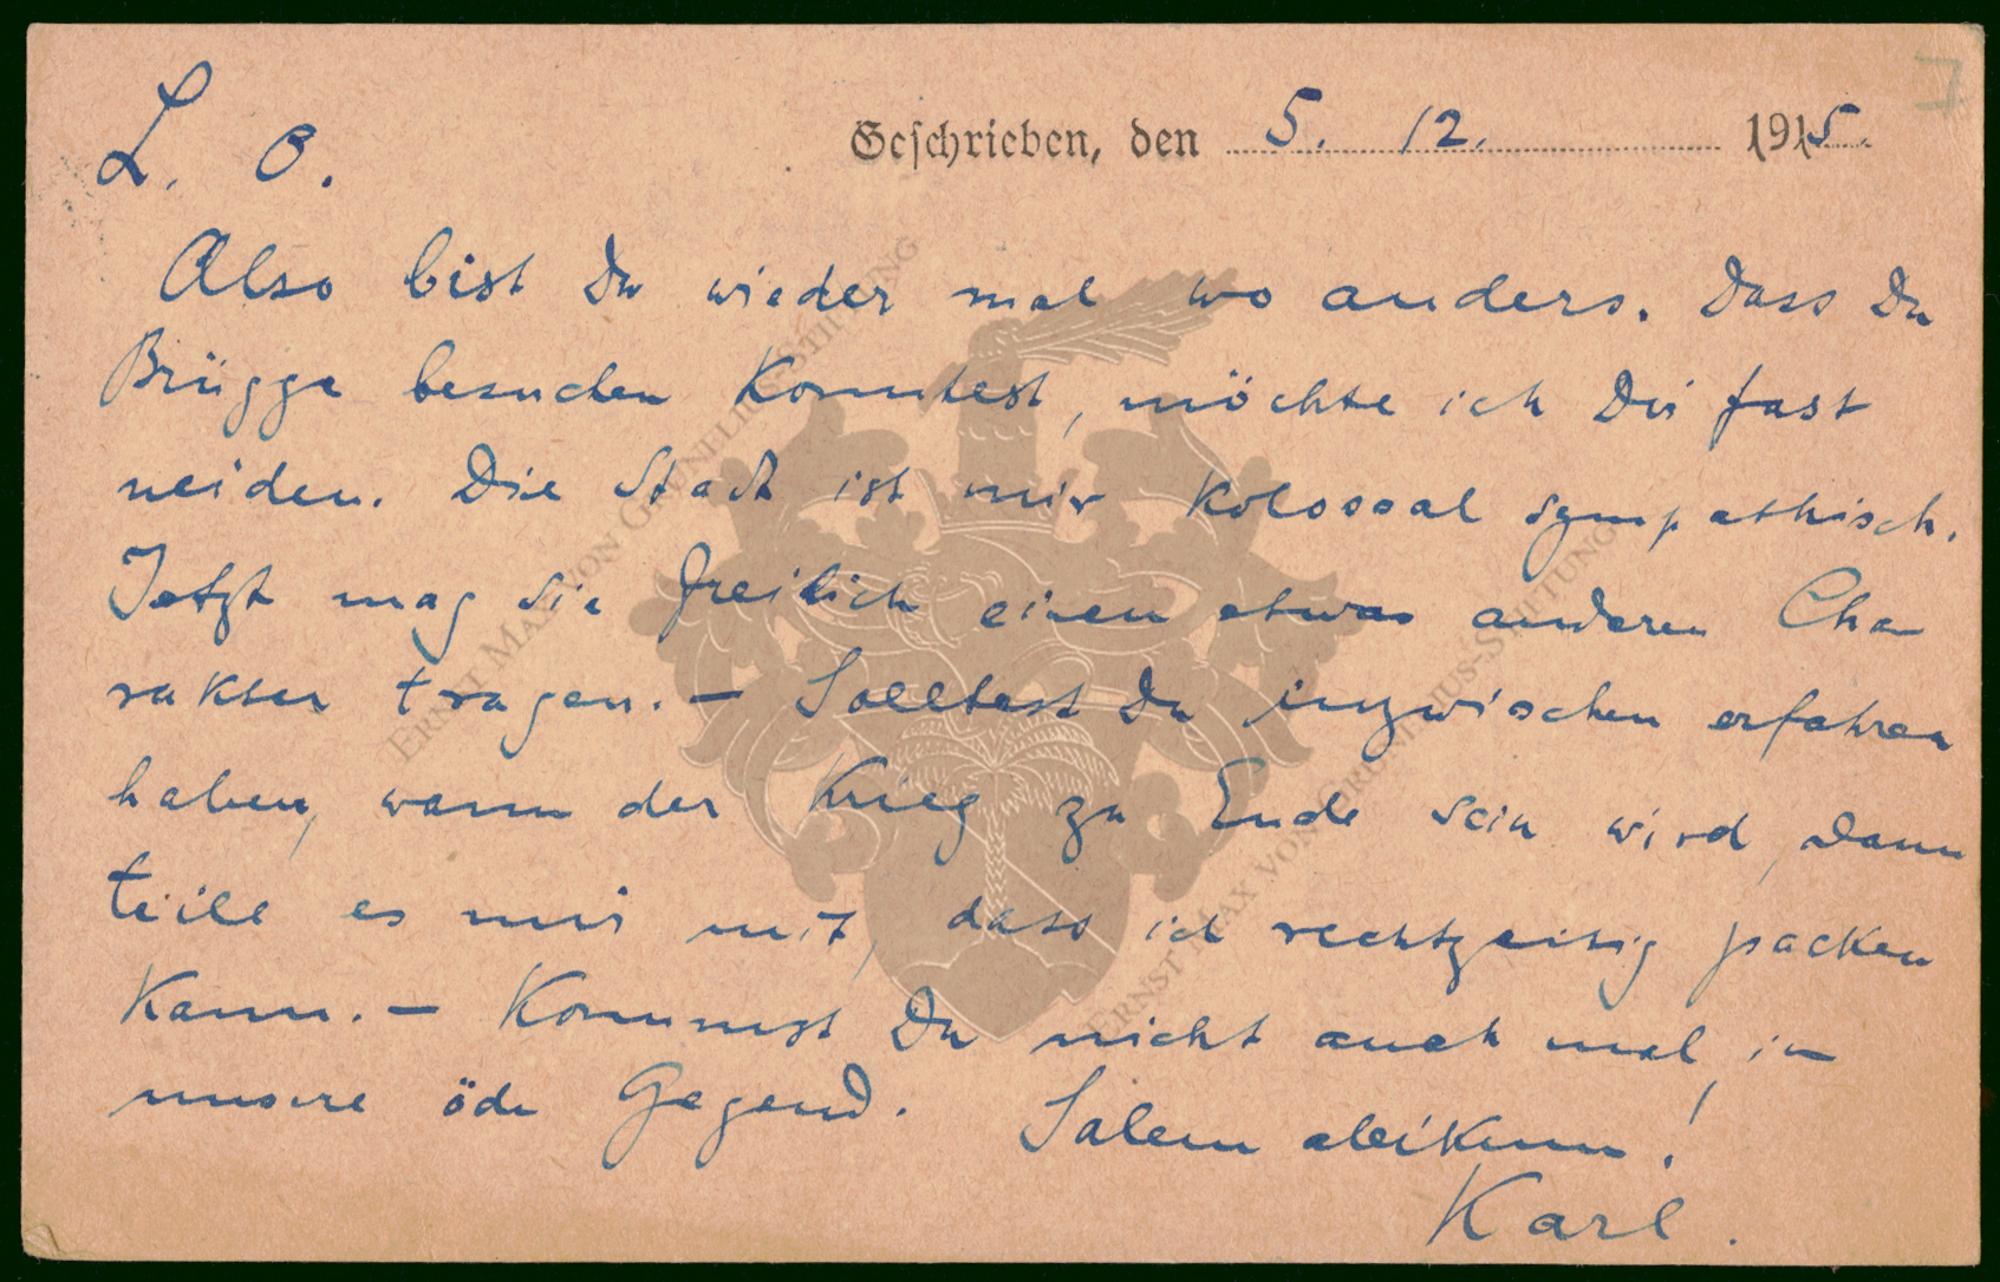 Geschrieben, den 5. 12. 1915.
L. O.
Also bist Du wieder mal wo anders. Dass Du
Brügge besuchen konntest, möchte ich Dir fast
neiden. Die Stadt ist mir kolossal sympathisch.
Jetzt mag sie freilich einen etwas anderen Cha
rakter tragen. – Solltest Du inzwischen erfahren
haben, wann der Krieg zu Ende sein wird, dann
teile es mir mit, dass ich rechtzeitig packen
kann. – Kommst Du nicht auch mal in
unsere öde Gegend. Salem aleikum!
Karl.
ERNST MAX VON GRUNELIUS-STIFTUNG
ERNST MAX VON GRUNELIUS-STIFTUNG